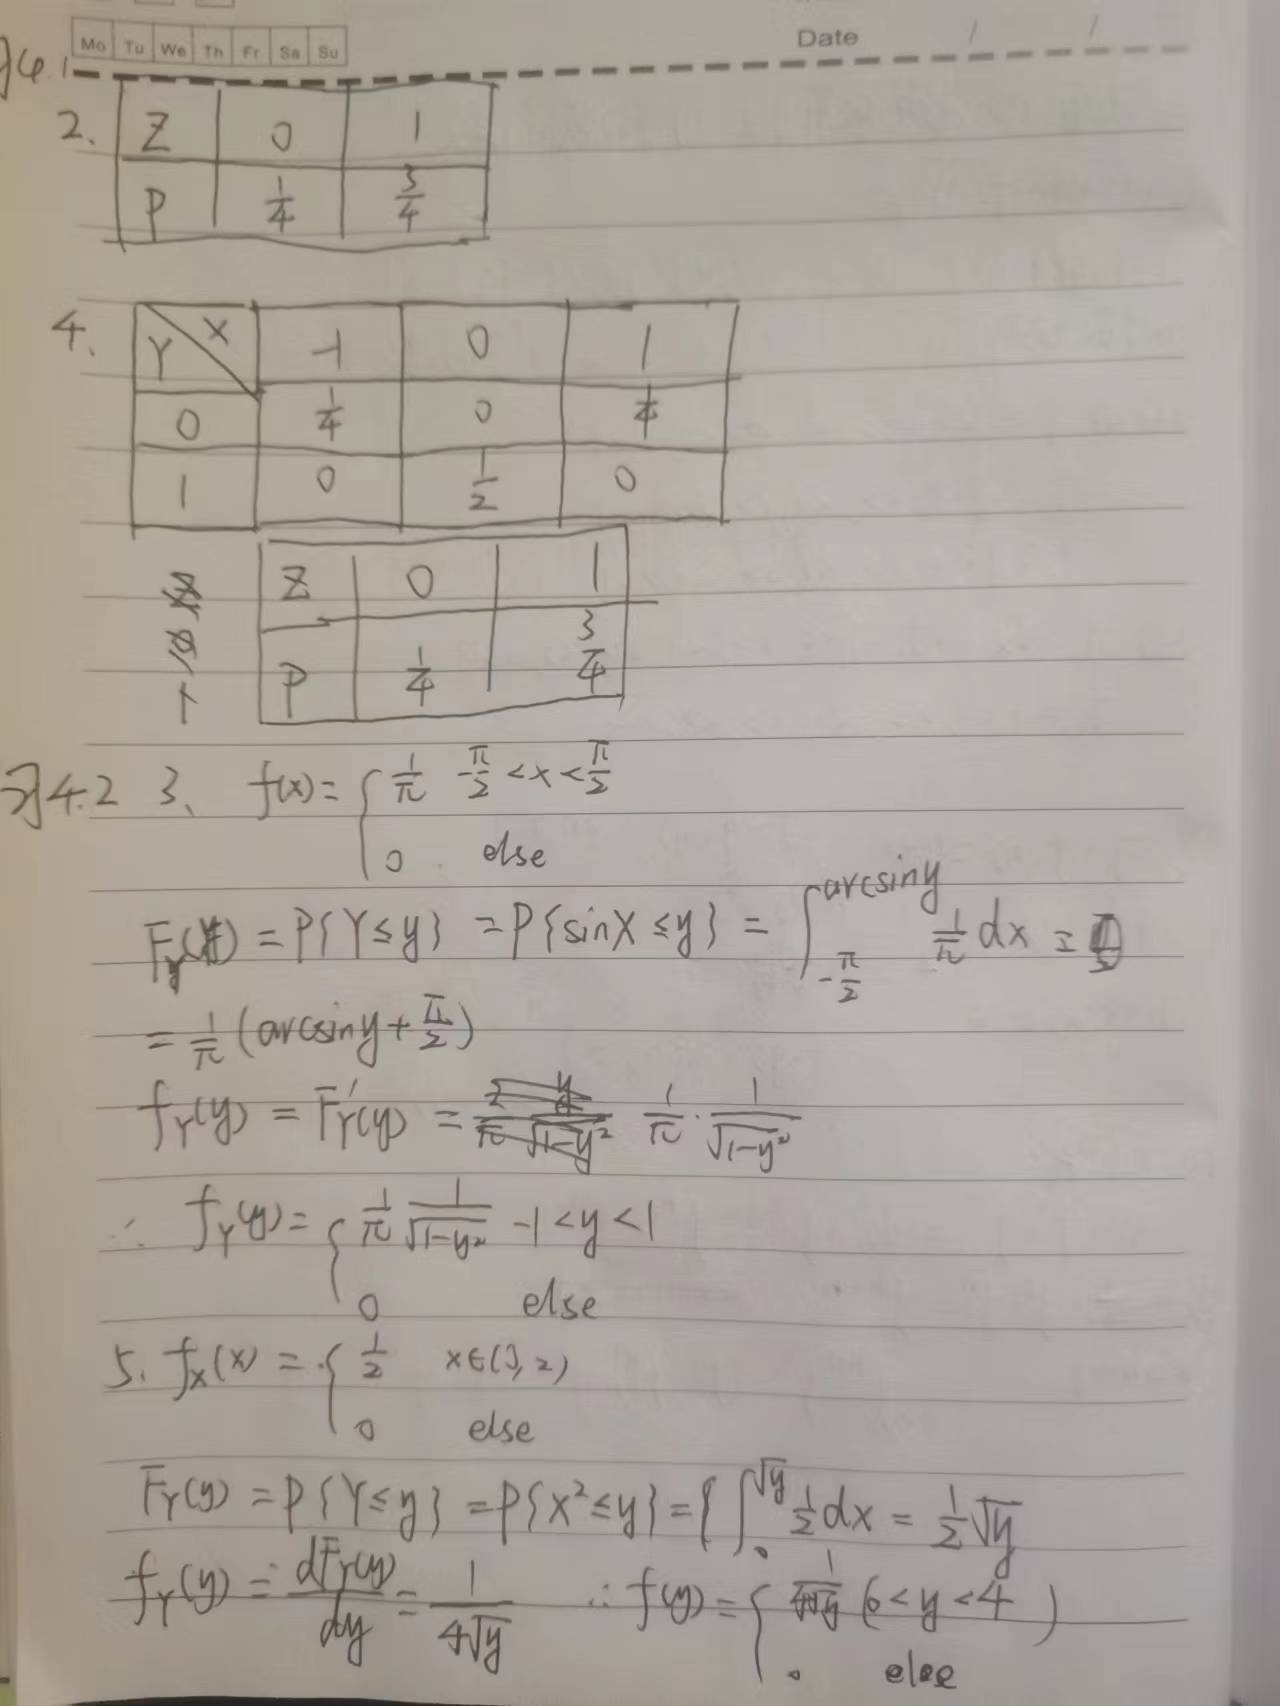 Mo Tu We Th Fr Sa Su
Date / /
习4.1
2. Z 0 1
P 1/4 3/4
4. Y X -1 0 1
0 1/4 0 1/4
1 0 1/2 0
Z 0 1
P 1/4 3/4
习4.2 3、 f(x)= { 1/π -π/2 <x< π/2
0 else
F_Y(y) = P{Y≤y} = P{sinX≤y} = ∫_{-π/2}^{arcsiny} 1/π dx =
= 1/π (arcsiny+π/2)
f_Y(y) = F_Y'(y) = 1/π · 1/√(1-y²)
∴ f_Y(y)= { 1/π 1/√(1-y²) -1<y<1
0 else
5. f_X(x) = { 1/2 x∈(0,2)
0 else
F_Y(y) = P{Y≤y} = P{X²≤y} = { ∫_0^{√y} 1/2 dx = 1/2 √y
f_Y(y) = dF_Y(y)/dy = 1/(4√y) ∴ f(y) = { 1/(4√y) (0<y<4)
0 else